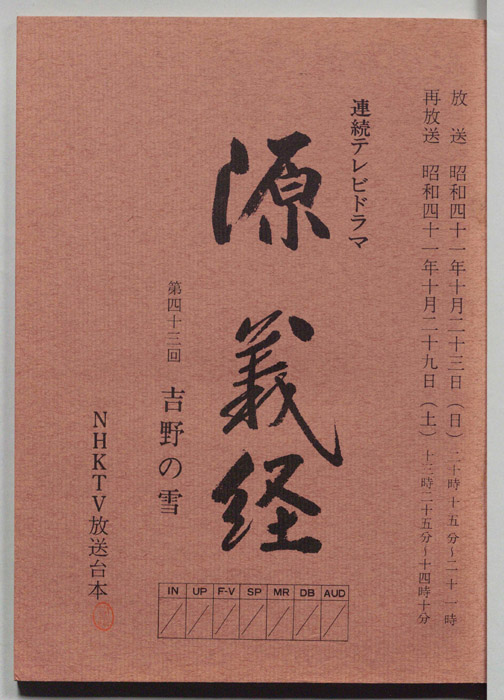 放送 昭和四十一年十月二十三日(日)二十時十五分~二十一時
再放送 昭和四十一年十月二十九日(土)十三時二十五分~十四時十分
連続テレビドラマ
源義経
第四十三回 吉野の雪
NHKTV放送台本
IN UP F-V SP MR DB AUD